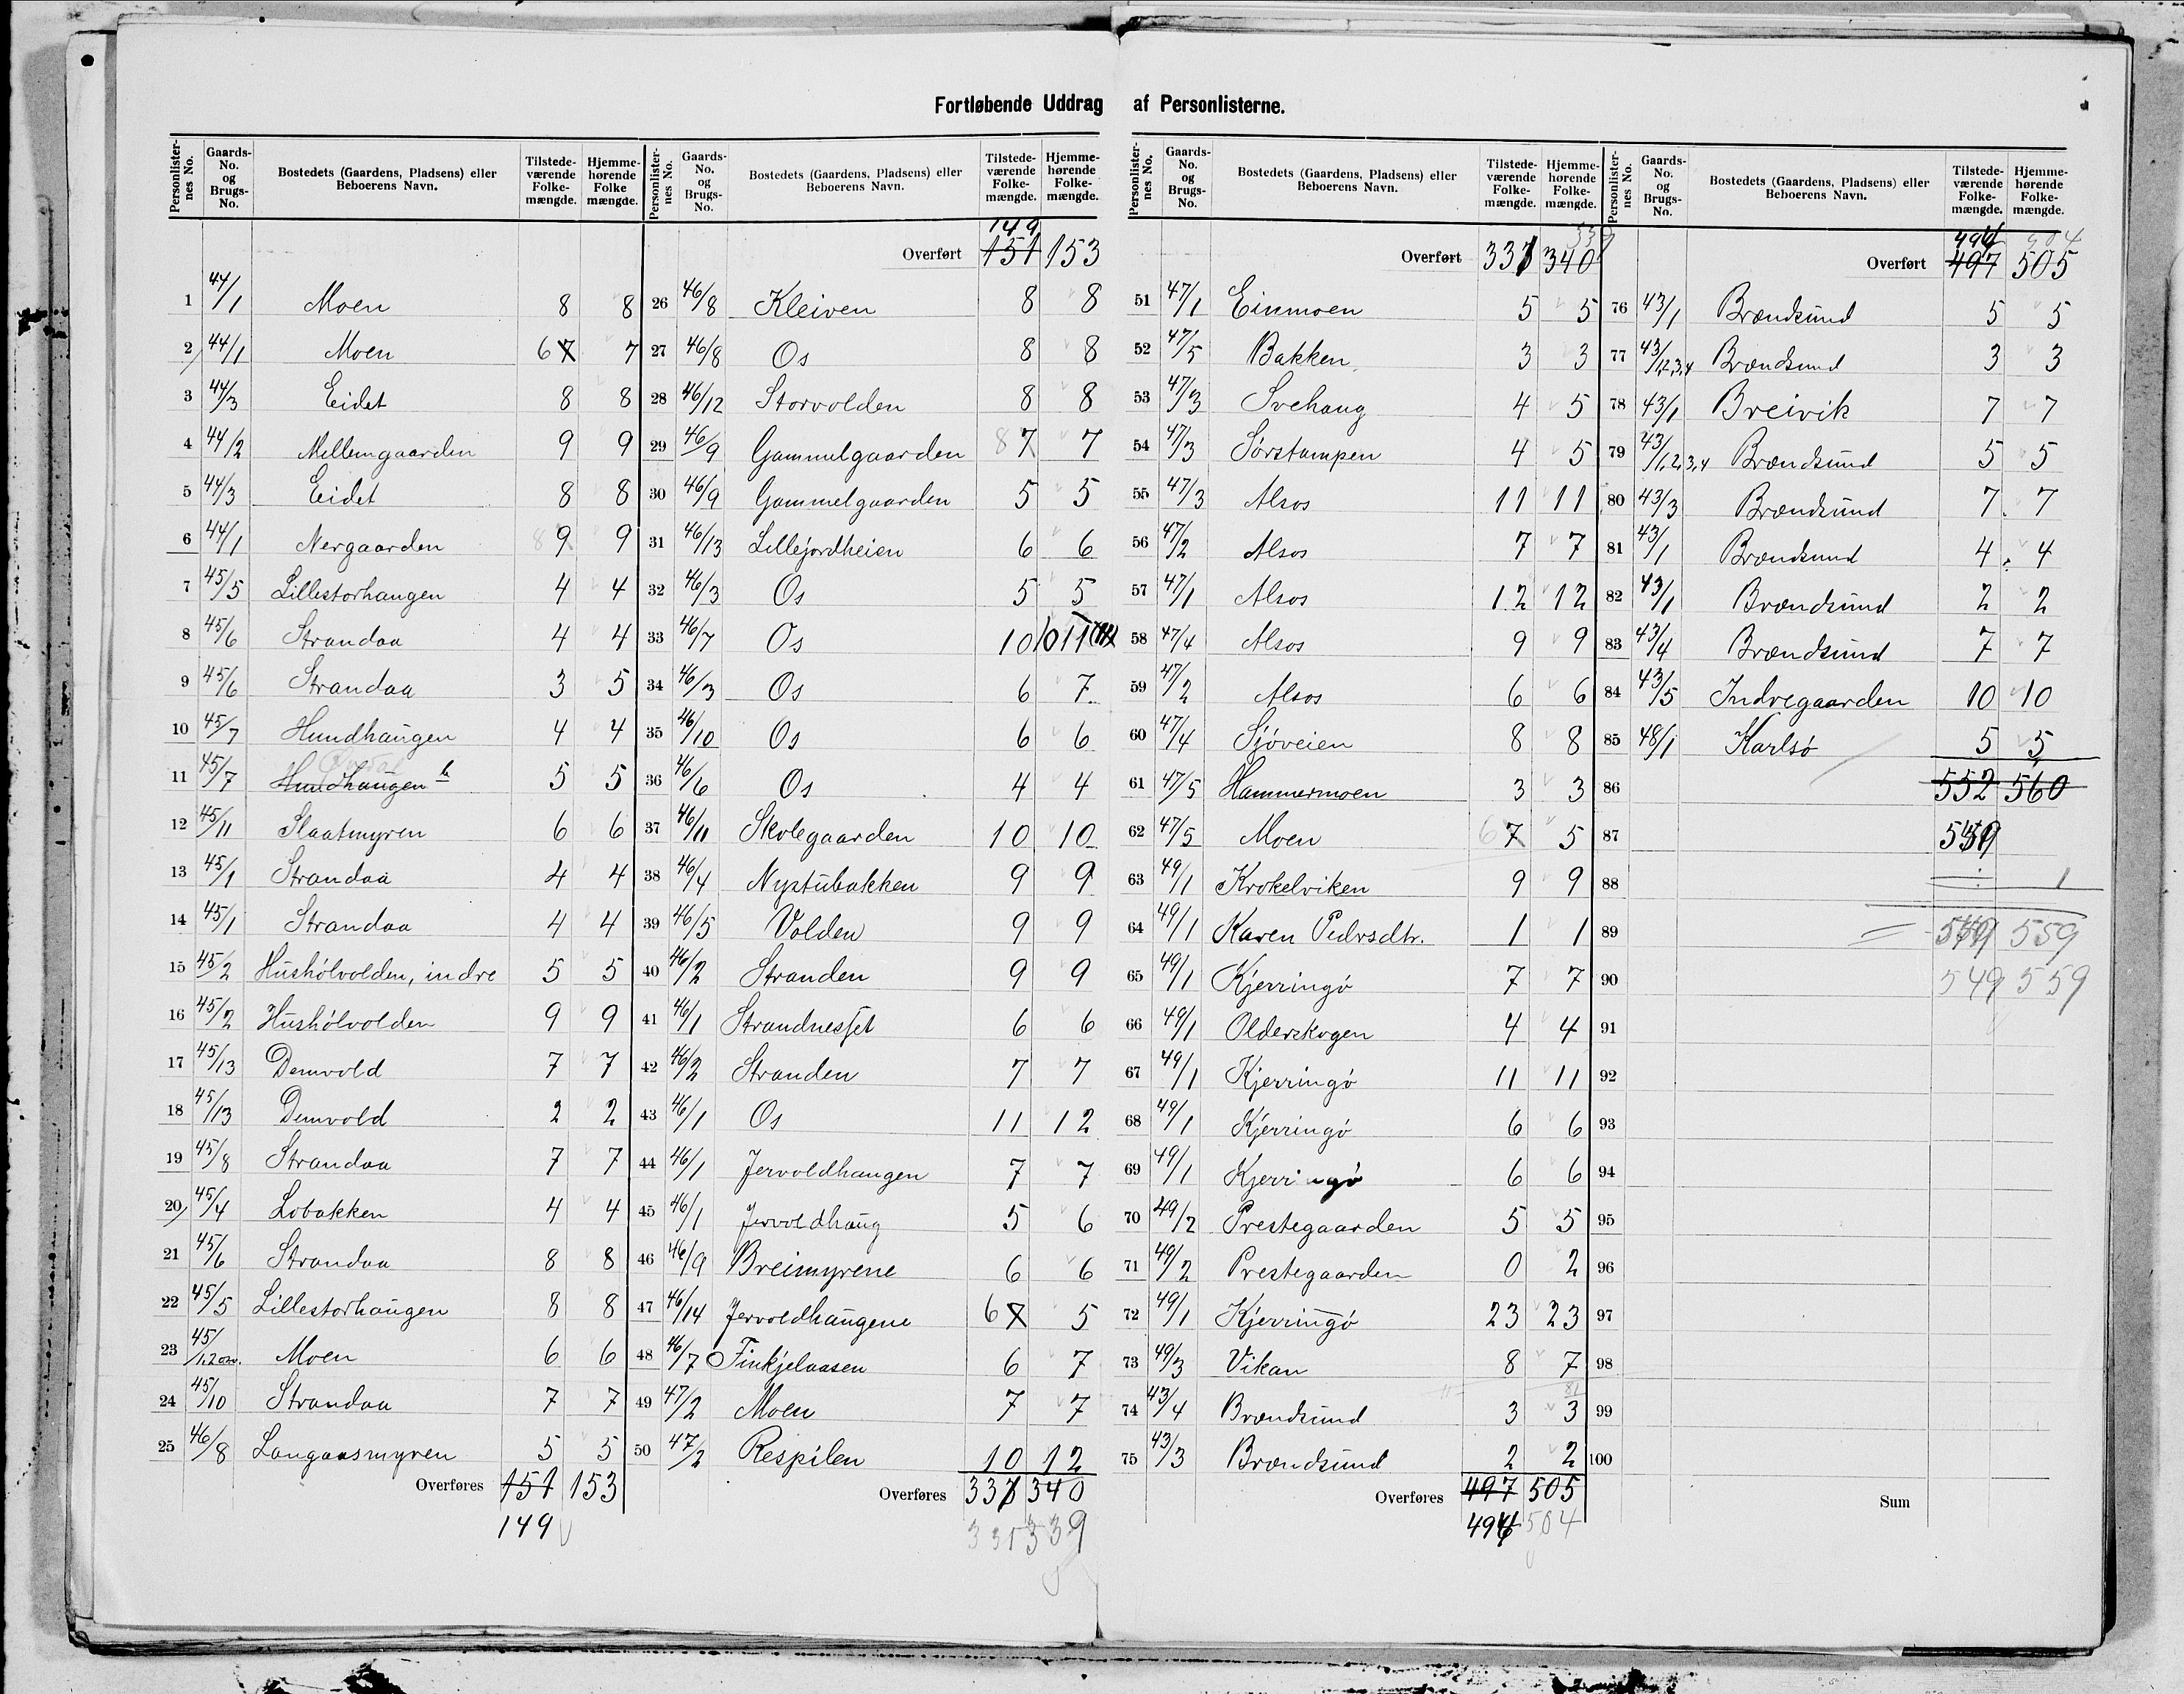 Fortløbende Uddrag af Personlisterne.
Personlister-nes No. | Gaards-No. og Brugs-No. | Bostedets (Gaardens, Pladsens) eller Beboerens Navn. | Tilstede-værende Folke-mængde. | Hjemme-hørende Folke mængde.
1 44/1 Moen 8 8
2 44/1 Moen 6 7 7
3 44/3 Eidet 8 8
4 44/2 Mellemgaarden 9 9
5 44/3 Eidet 8 8
6 44/1 Nergaarden 8 9 9
7 45/5 Lillestorhaugen 4 4
8 45/6 Strandaa 4 4
9 45/6 Strandaa 3 5
10 45/7 Hundhaugen 4 4
11 45/7 Hundhaugen 5 5
12 45/11 Slaatmyren 6 6
13 45/1 Strandaa 4 4
14 45/1 Strandaa 4 4
15 45/2 Hushólvolden, indre 5 5
16 45/2 Hushólvolden 9 9
17 45/13 Demvold 7 7
18 45/13 Demvold 2 2
19 45/8 Strandaa 7 7
20 45/4 Lobakken 4 4
21 45/6 Strandaa 8 8
22 45/5 Lillestorhaugen 8 8
23 45/1,2 osv. Moen 6 6
24 45/10 Strandaa 7 7
25 46/8 Langaasmyren 5 5
Overføres 151 153
149
Personlister-nes No. | Gaards-No. og Brugs-No. | Bostedets (Gaardens, Pladsens) eller Beboerens Navn. | Tilstede-værende Folke-mængde. | Hjemme-hørende Folke-mængde.
149
Overført 151 153
26 46/8 Kleiven 8 8
27 46/8 Os 8 8
28 46/12 Storvolden 8 8
29 46/9 Gammelgaarden 8 7 7
30 46/9 Gammelgaarden 5 5
31 46/13 Lillejordheien 6 6
32 46/3 Os 5 5
33 46/7 Os 10 10 11
34 46/3 Os 6 7
35 46/10 Os 6 6
36 46/6 Os 4 4
37 46/11 Skolegaarden 10 10
38 46/4 Nystubakken 9 9
39 46/5 Volden 9 9
40 46/2 Stranden 9 9
41 46/1 Strandnesset 6 6
42 46/2 Stranden 7 7
43 46/1 Os 11 12
44 46/1 Jervoldhaugen 7 7
45 46/1 Jervoldhaug 5 6
46 46/9 Breimyrene 6 6
47 46/14 Jervoldhaugene 6 7 5
48 46/7 Finkjelaasen 6 7
49 47/2 Moen 7 7
50 47/2 Respilen 10 12
Overføres 337 340
335 339
Personlister-nes No. | Gaards-No. og Brugs-No. | Bostedets (Gaardens, Pladsens) eller Beboerens Navn. | Tilstede-værende Folke-mængde. | Hjemme-hørende Folke-mængde.
339
Overført 337 340
51 47/1 Einmoen 5 5
52 47/5 Bakken 3 3
53 47/3 Svehaug 4 5
54 47/3 Sørstampen 4 5
55 47/3 Alsos 11 11
56 47/2 Alsos 7 7
57 47/1 Alsos 12 12
58 47/4 Alsos 9 9
59 47/2 Alsos 6 6
60 47/4 Sjóveien 8 8
61 47/5 Hammermoen 3 3
62 47/5 Moen 6 7 5
63 49/1 Krokelviken 9 9
64 49/1 Karen Pedrsdtr. 1 1
65 49/1 Kjerringó 7 7
66 49/1 Olderskogen 4 4
67 49/1 Kjerringó 11 11
68 49/1 Kjerringó 6 6
69 49/1 Kjerringó 6 6
70 49/2 Prestegaarden 5 5
71 49/2 Prestegaarden 0 2
72 49/1 Kjerringó 23 23
73 49/3 Vikan 8 7
74 43/4 Brændsund 3 3
75 43/3 Brændsund 2 2
Overføres 497 505
494 504
Personlister-nes No. | Gaards-No. og Brugs-No. | Bostedets (Gaardens, Pladsens) eller Beboerens Navn. | Tilstede-værende Folke-mængde. | Hjemme-hørende Folke-mængde.
494 504
Overført 497 505
76 43/1 Brændsund 5 5
77 43/1,2,3,4 Brændsund 3 3
78 43/1 Breivik 7 7
79 43/1,2,3,4 Brændsund 5 5
80 43/3 Brændsund 7 7
81 43/1 Brændsund 4 4
82 43/1 Brændsund 2 2
83 43/4 Brændsund 7 7
84 43/5 Indregaarden 10 10
85 48/1 Karlsø 5 5
86 552 560
87
88 1
89 549 559
90 549 559
91
92
93
94
95
96
97
98
99
100
Sum